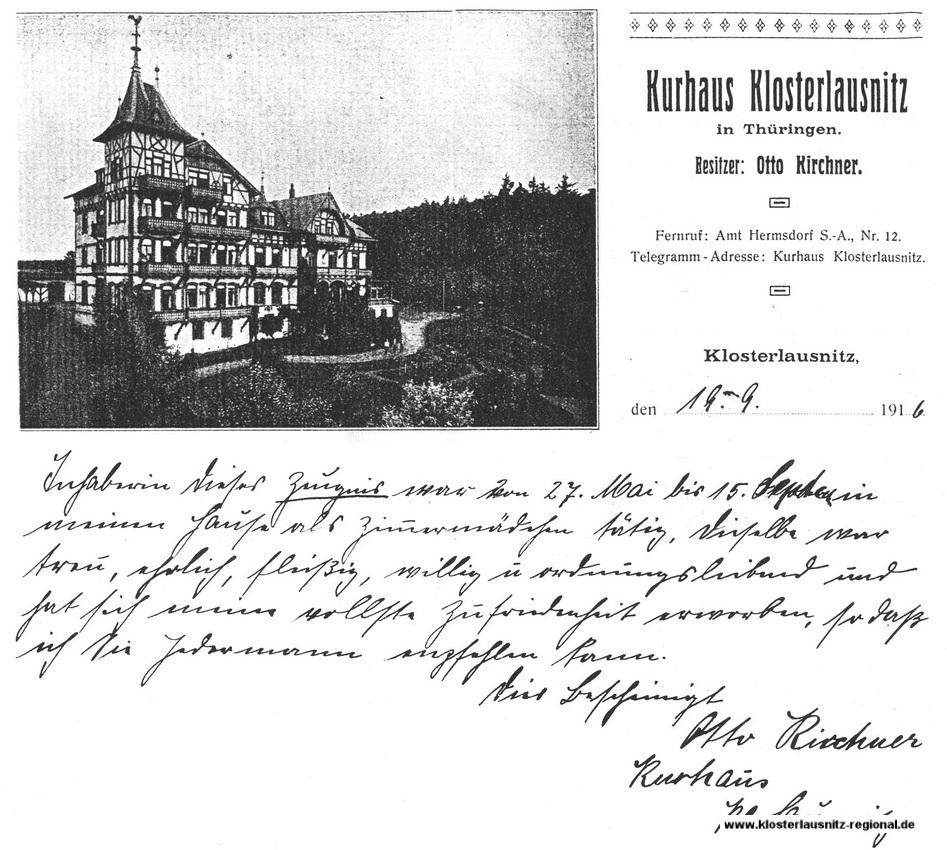 Kurhaus Klosterlausnitz
in Thüringen.
Besitzer: Otto Kirchner.
Fernruf: Amt Hermsdorf S.-A., Nr. 12.
Telegramm-Adresse: Kurhaus Klosterlausnitz.
Klosterlausnitz,
den 19. 9. 1916
Inhaberin dieses Zeugnis war von 27. Mai bis 15. in
meinen Hause als Zimmermädchen tätig, dieselbe war
treu, ehrlich, fleißig, willig u ordnungsliebend und
hat sich meine vollste Zufriedenheit erworben, so daß
ich sie Jedermann empfehlen kann.
Dies Bescheinigt
Otto Kirchner
Kurhaus
www.klosterlausnitz-regional.de